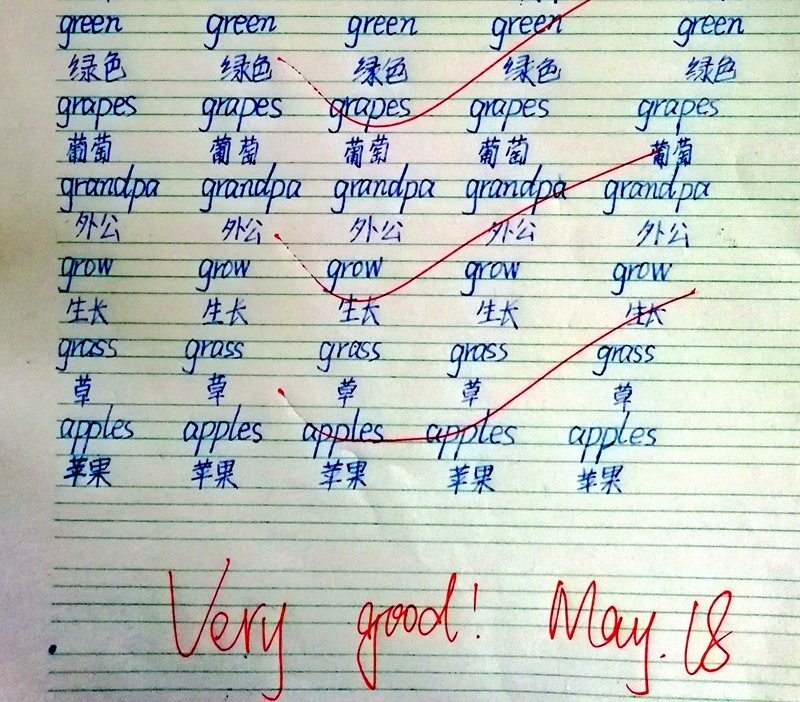 green green green green green
绿色 绿色 绿色 绿色 绿色
grapes grapes grapes grapes grapes
葡萄 葡萄 葡萄 葡萄 葡萄
grandpa grandpa grandpa grandpa grandpa
外公 外公 外公 外公 外公
grow grow grow grow grow
生长 生长 生长 生长 生长
grass grass grass grass grass
草 草 草 草 草
apples apples apples apples apples
苹果 苹果 苹果 苹果 苹果
Very good! May. 18